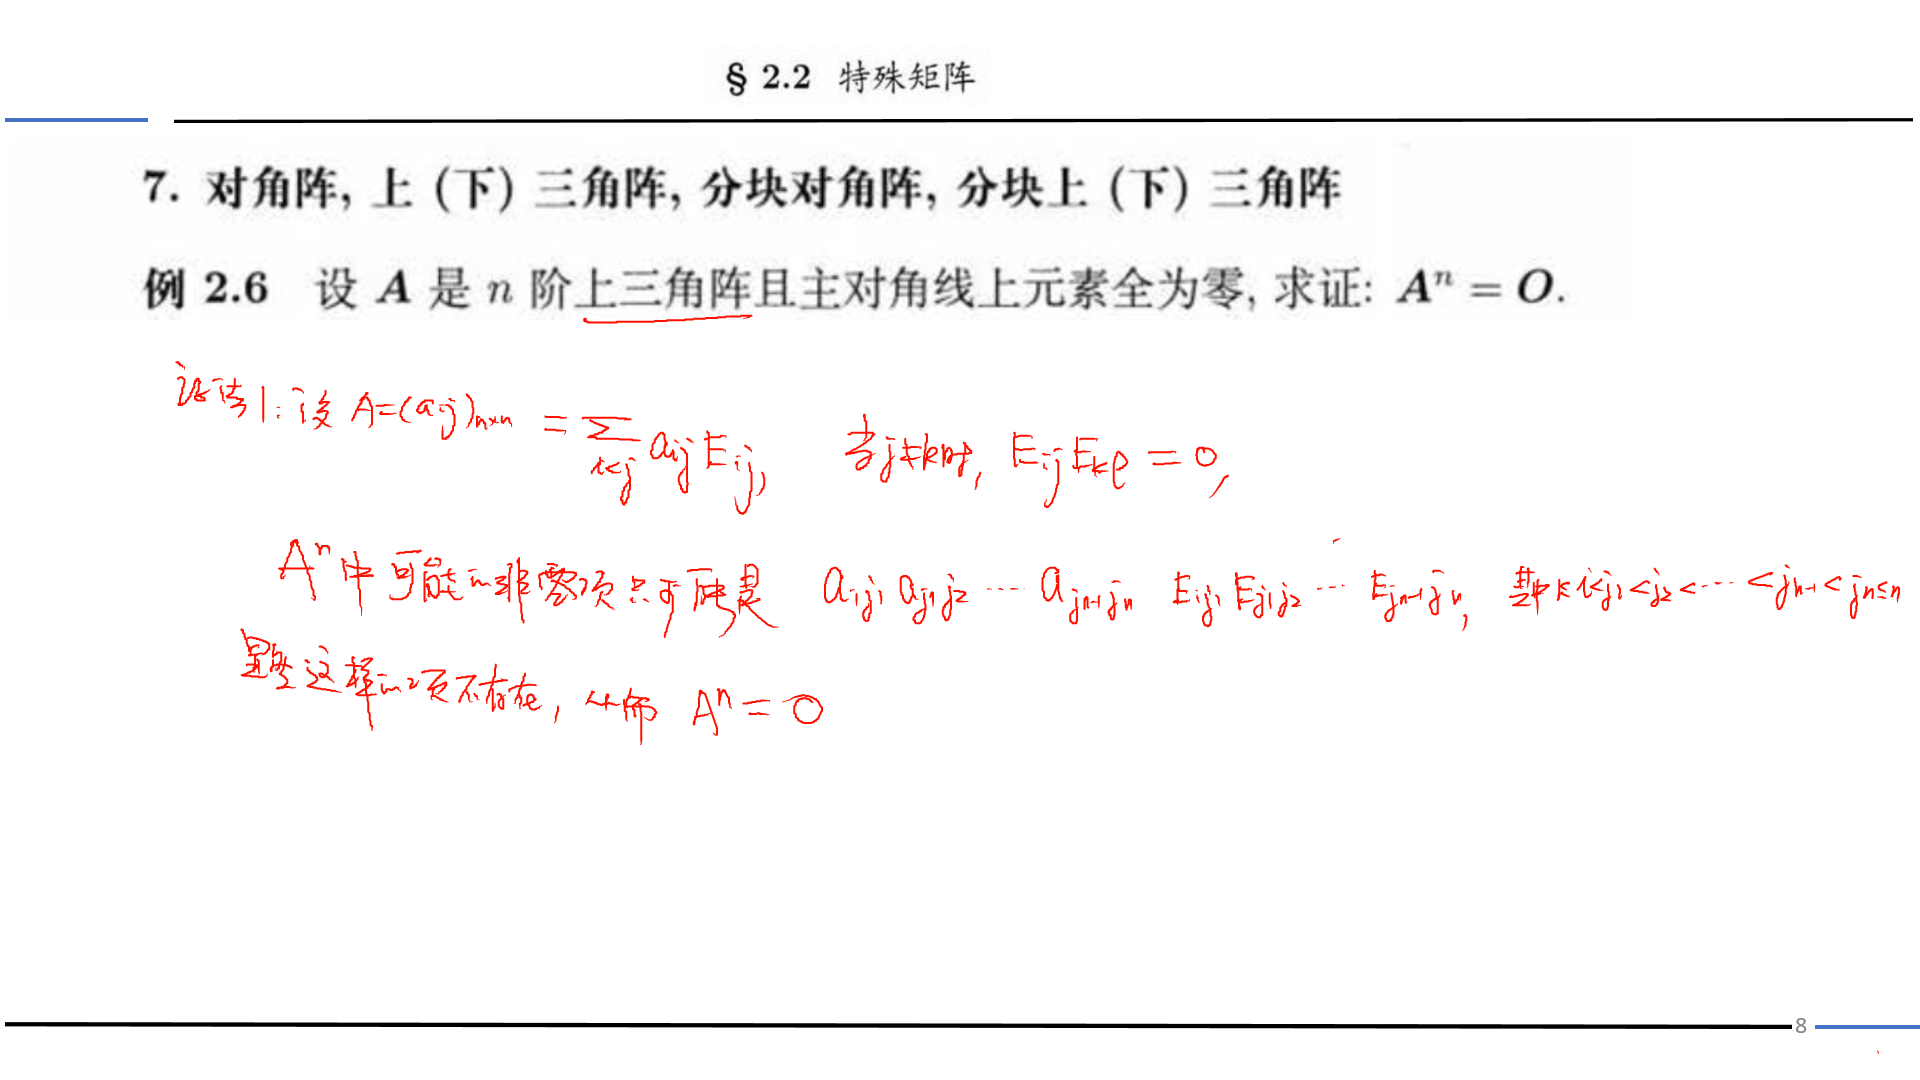 § 2.2 特殊矩阵
7. 对角阵, 上 (下) 三角阵, 分块对角阵, 分块上 (下) 三角阵
例 2.6 设 A 是 n 阶上三角阵且主对角线上元素全为零, 求证: Aⁿ = O.
证法1: 设 A=(aij)n×n = ∑i<j aij Eij, 当j≠k时, Eij Ekl = 0,
Aⁿ中可能的非零项只可能是 aij₁ aj₁j₂ ⋯ ajn-1jn Eij₁ Ej₁j₂ ⋯ Ejn-1jn, 其中1≤i<j₁<j₂<⋯<jn-1<jn≤n
显然这样的项不存在, 从而 Aⁿ = 0
8